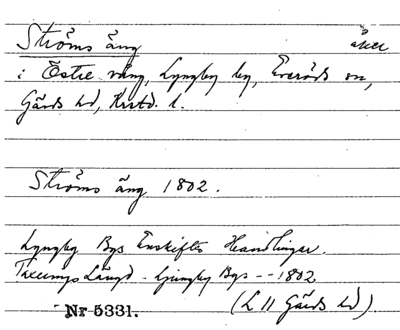 Ströms äng åker
i Östre vång, Lyngby by, Everöds sn,
Gärds hd, Krstd. l.
Ströms äng 1802.
Lyngby Bys Enskiftes Handlingar.
Längd - Ljungby Bys -- 1802
(L 11 Gärds hd).
Nr 5331.